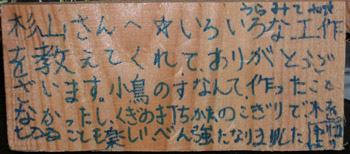 うらみて
杉山さんへ☆いろいろな工作
を教えてくれてありがとうご
ざいます。小鳥のすなんて、作ったこと
なかったし、くぎのうちかた、のこぎりで木を
きることも楽しいべん強になりました